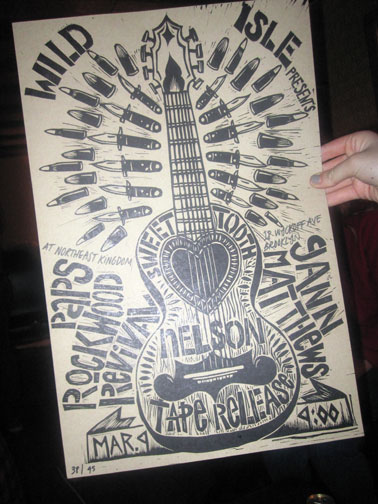 WILD ISLE
PRESENTS
SWEET TOOTH
NELSON
TAPE RELEASE
AT NORTHEAST KINGDOM
18 WYCKOFF AVE
BROOKLYN
PAPS
ROCKWOOD
REVIVAL
YANN
MATTHEWS
MAR. 9
9:00
38/45